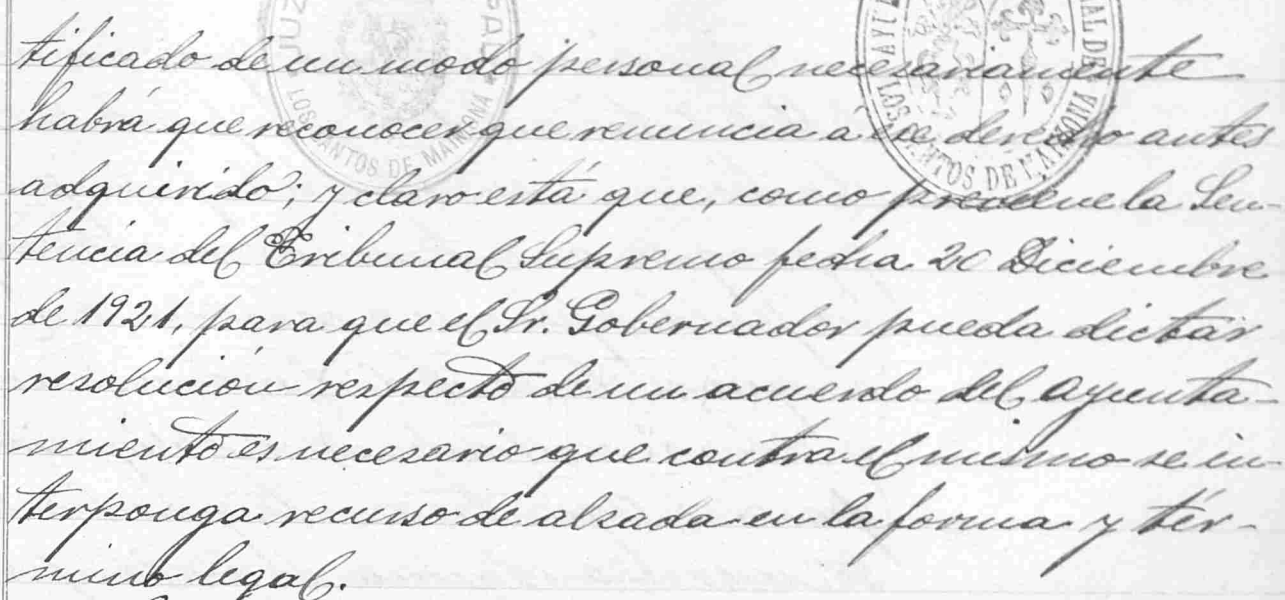 tificado de un modo personal necesariamente
habrá que reconocer que renuncia á ese derecho antes
adquirido; y claro está que, como previene la Sen-
tencia del Tribunal Supremo fecha 20 Diciembre
de 1921, para que el Sr. Gobernador pueda dictar
resolución respecto de un acuerdo del Ayunta-
miento es necesario que contra el mismo se in-
terponga recurso de alzada en la forma y tér-
mino legal.
LOS SANTOS DE MAIMONA
LOS SANTOS DE MAIMONA